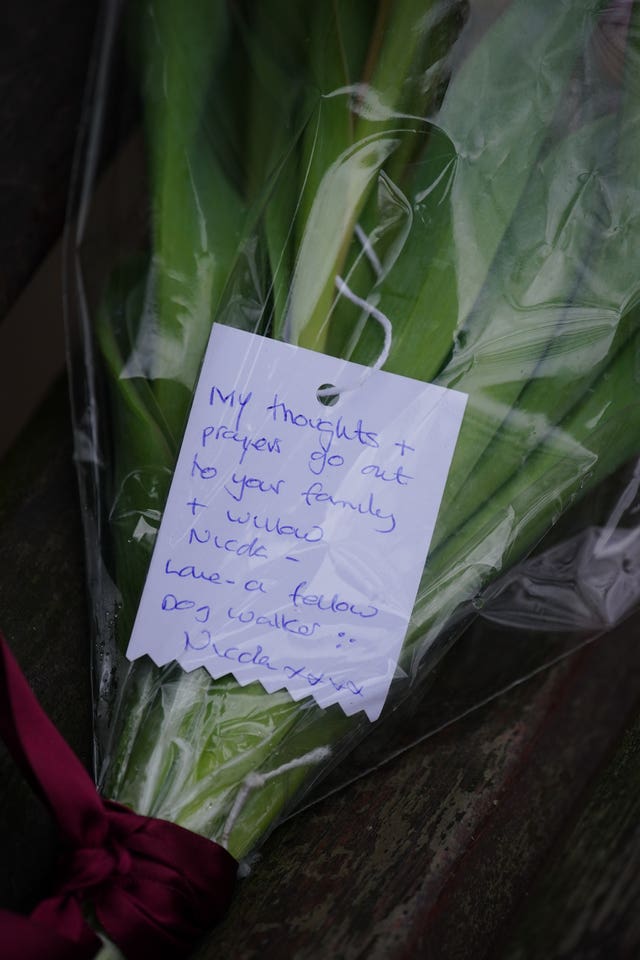 My thoughts +
prayers go out
to your family
+ willow
Nicola -
Love - a fellow
Dog walker :;
Nicola xxxx